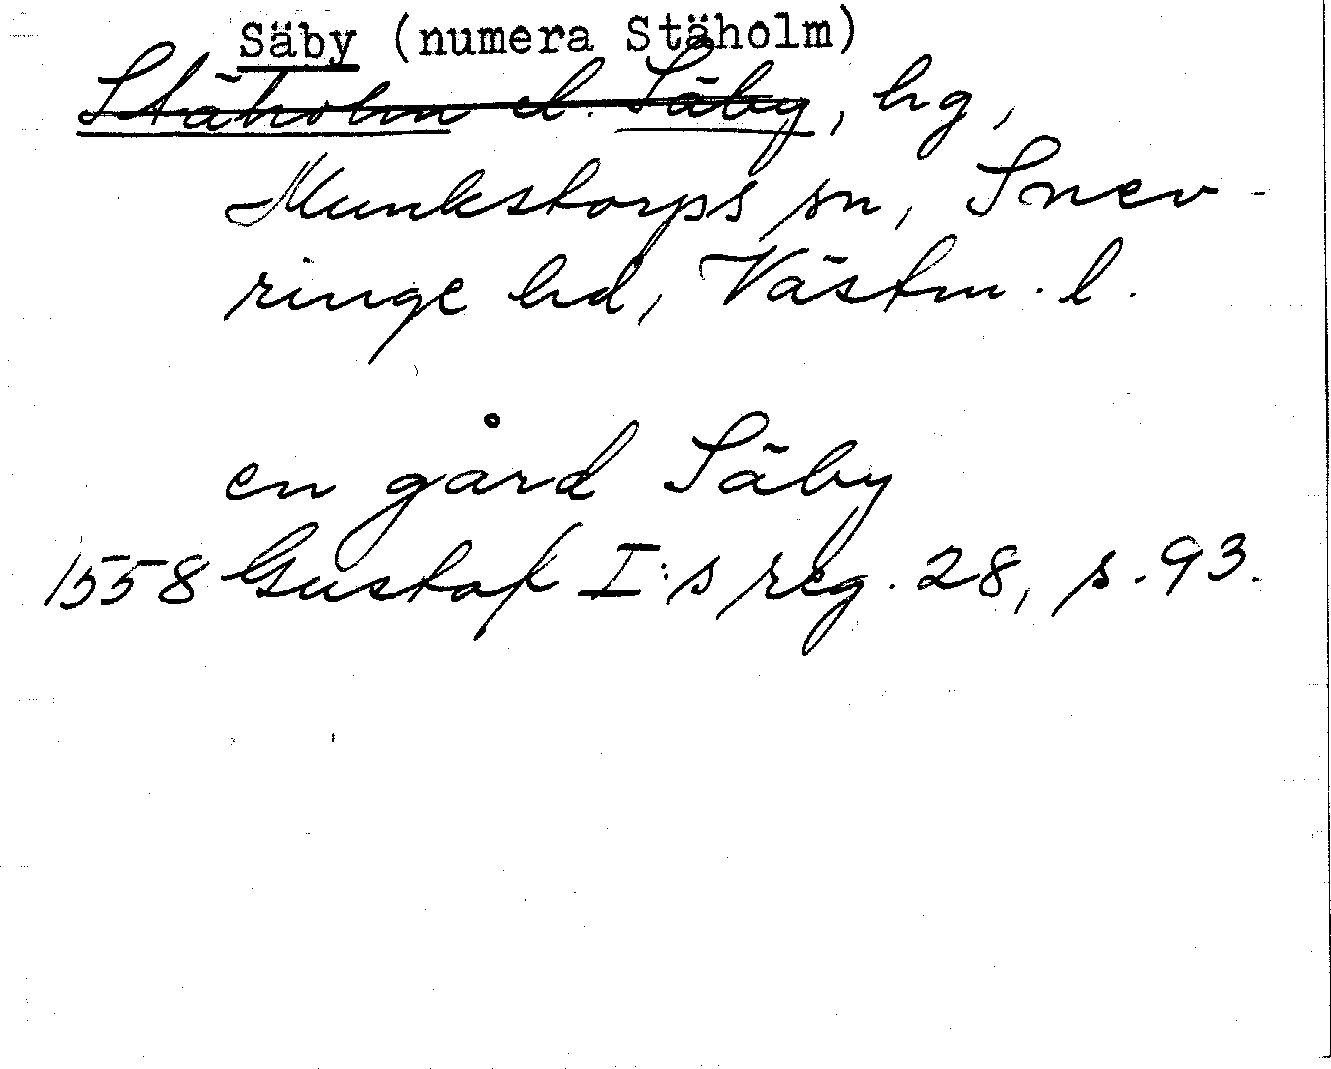 Säby (numera Stäholm)
Stäholm el. Säby, hg,
Munkstorps sn, Snev-
ringe hd, Västm. l.
en gård Säby
1558 Gustaf I:s reg. 28, s. 93.